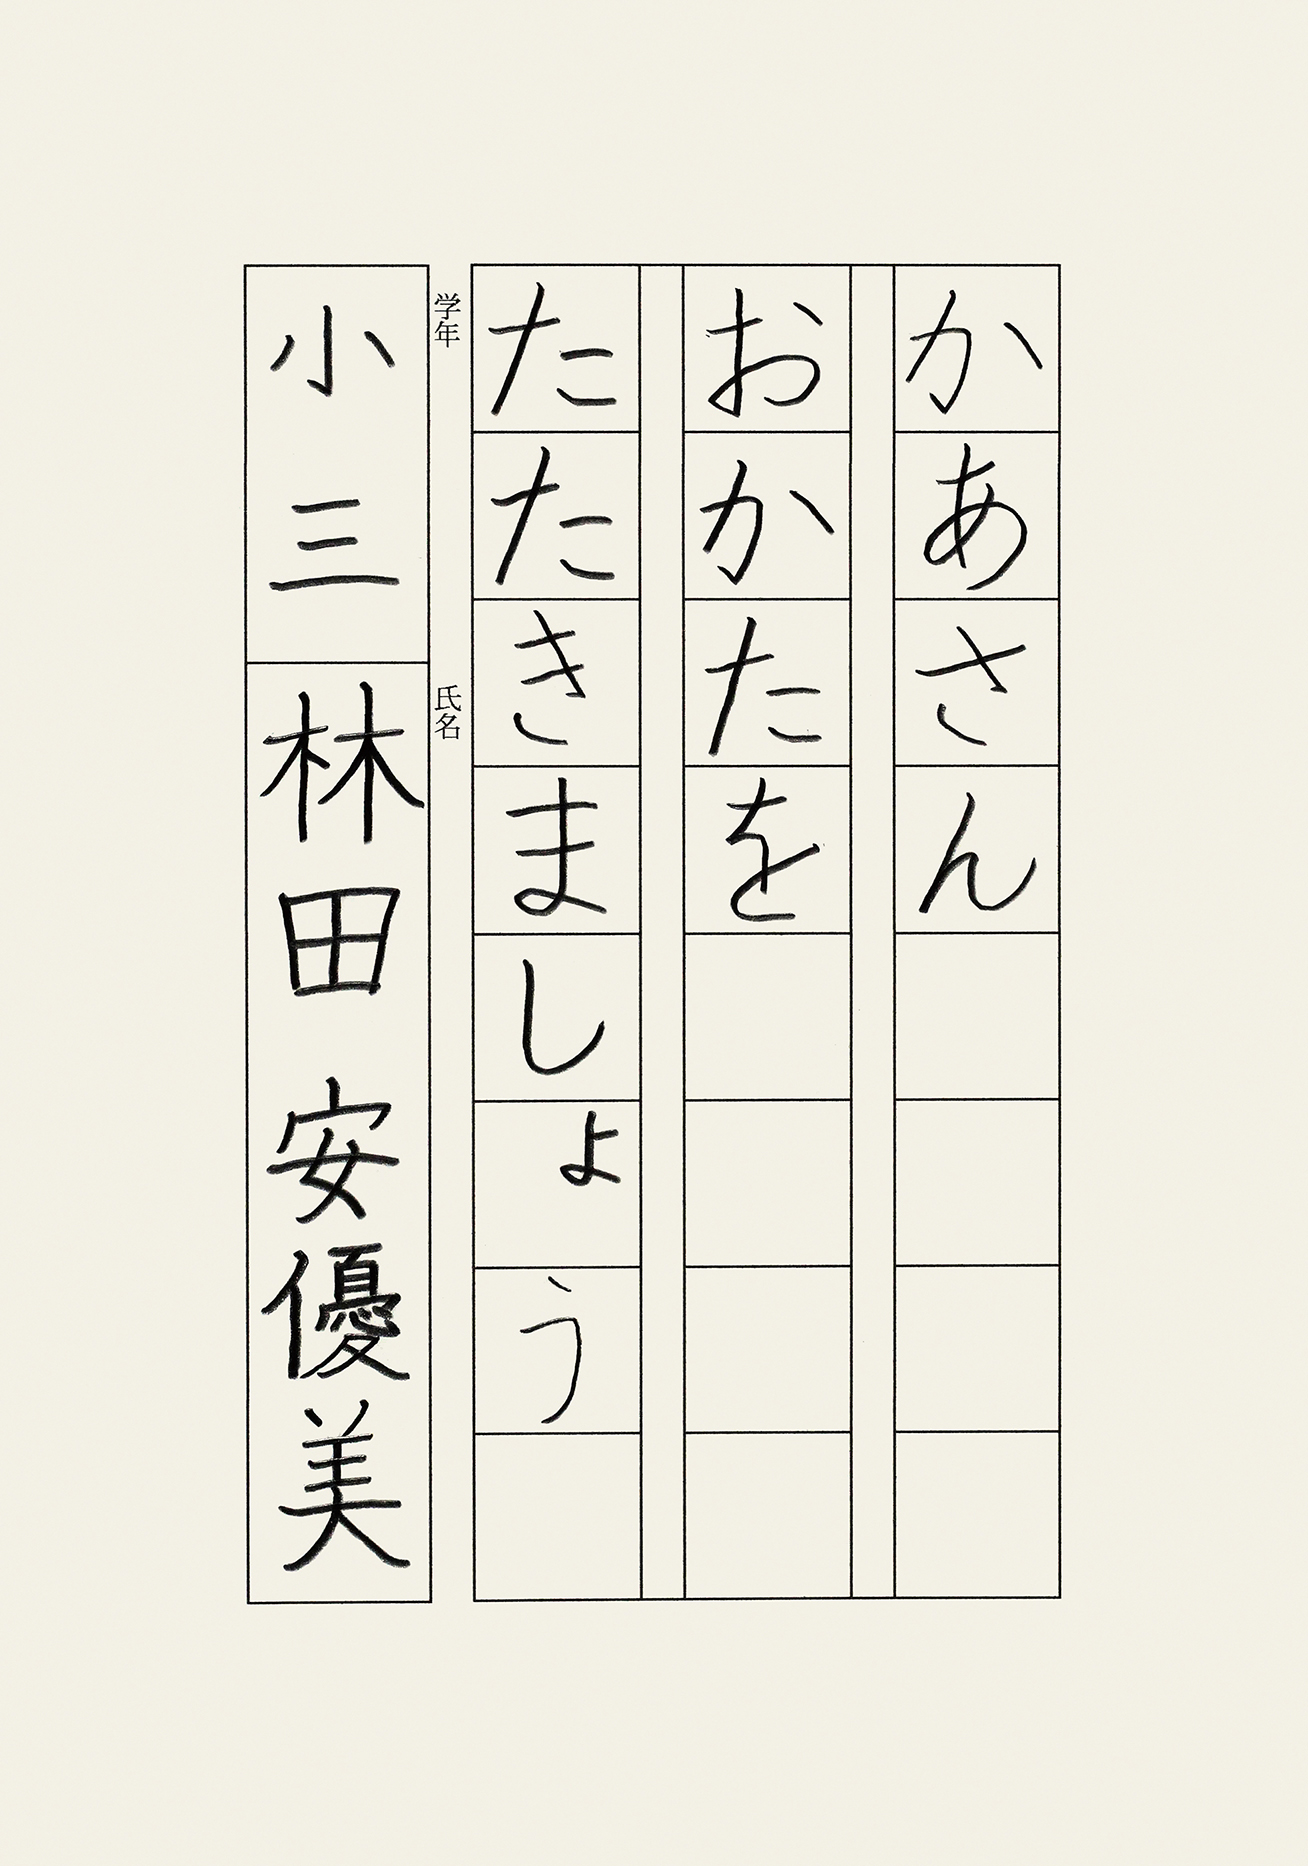 かあさん
おかたを
たたきましょう
学年
小三
氏名
林田 安優美